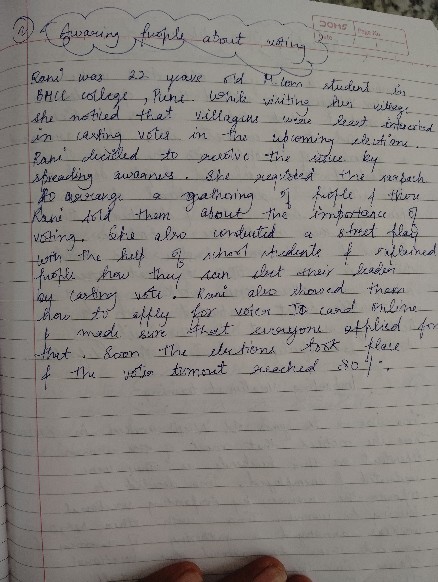 Awaring people about voting
DOMS Page No.
Date
Rani was 22 years old M.com student in
BMCC college, Pune. While visiting her village
she noticed that villagers were least interested
in casting votes in the upcoming elections.
Rani decided to resolve the issue by
spreading awarness. She requested the
to arrange a gathering of people &
Rani told them about the importance of
voting. She also conducted a street play
with the help of school students & explained
people how they can elect their leader
by casting vote. Rani also showed them
how to apply for voter ID card online
& made sure that everyone applied for
that. Soon the elections took place
& the voter turnout reached 80%.